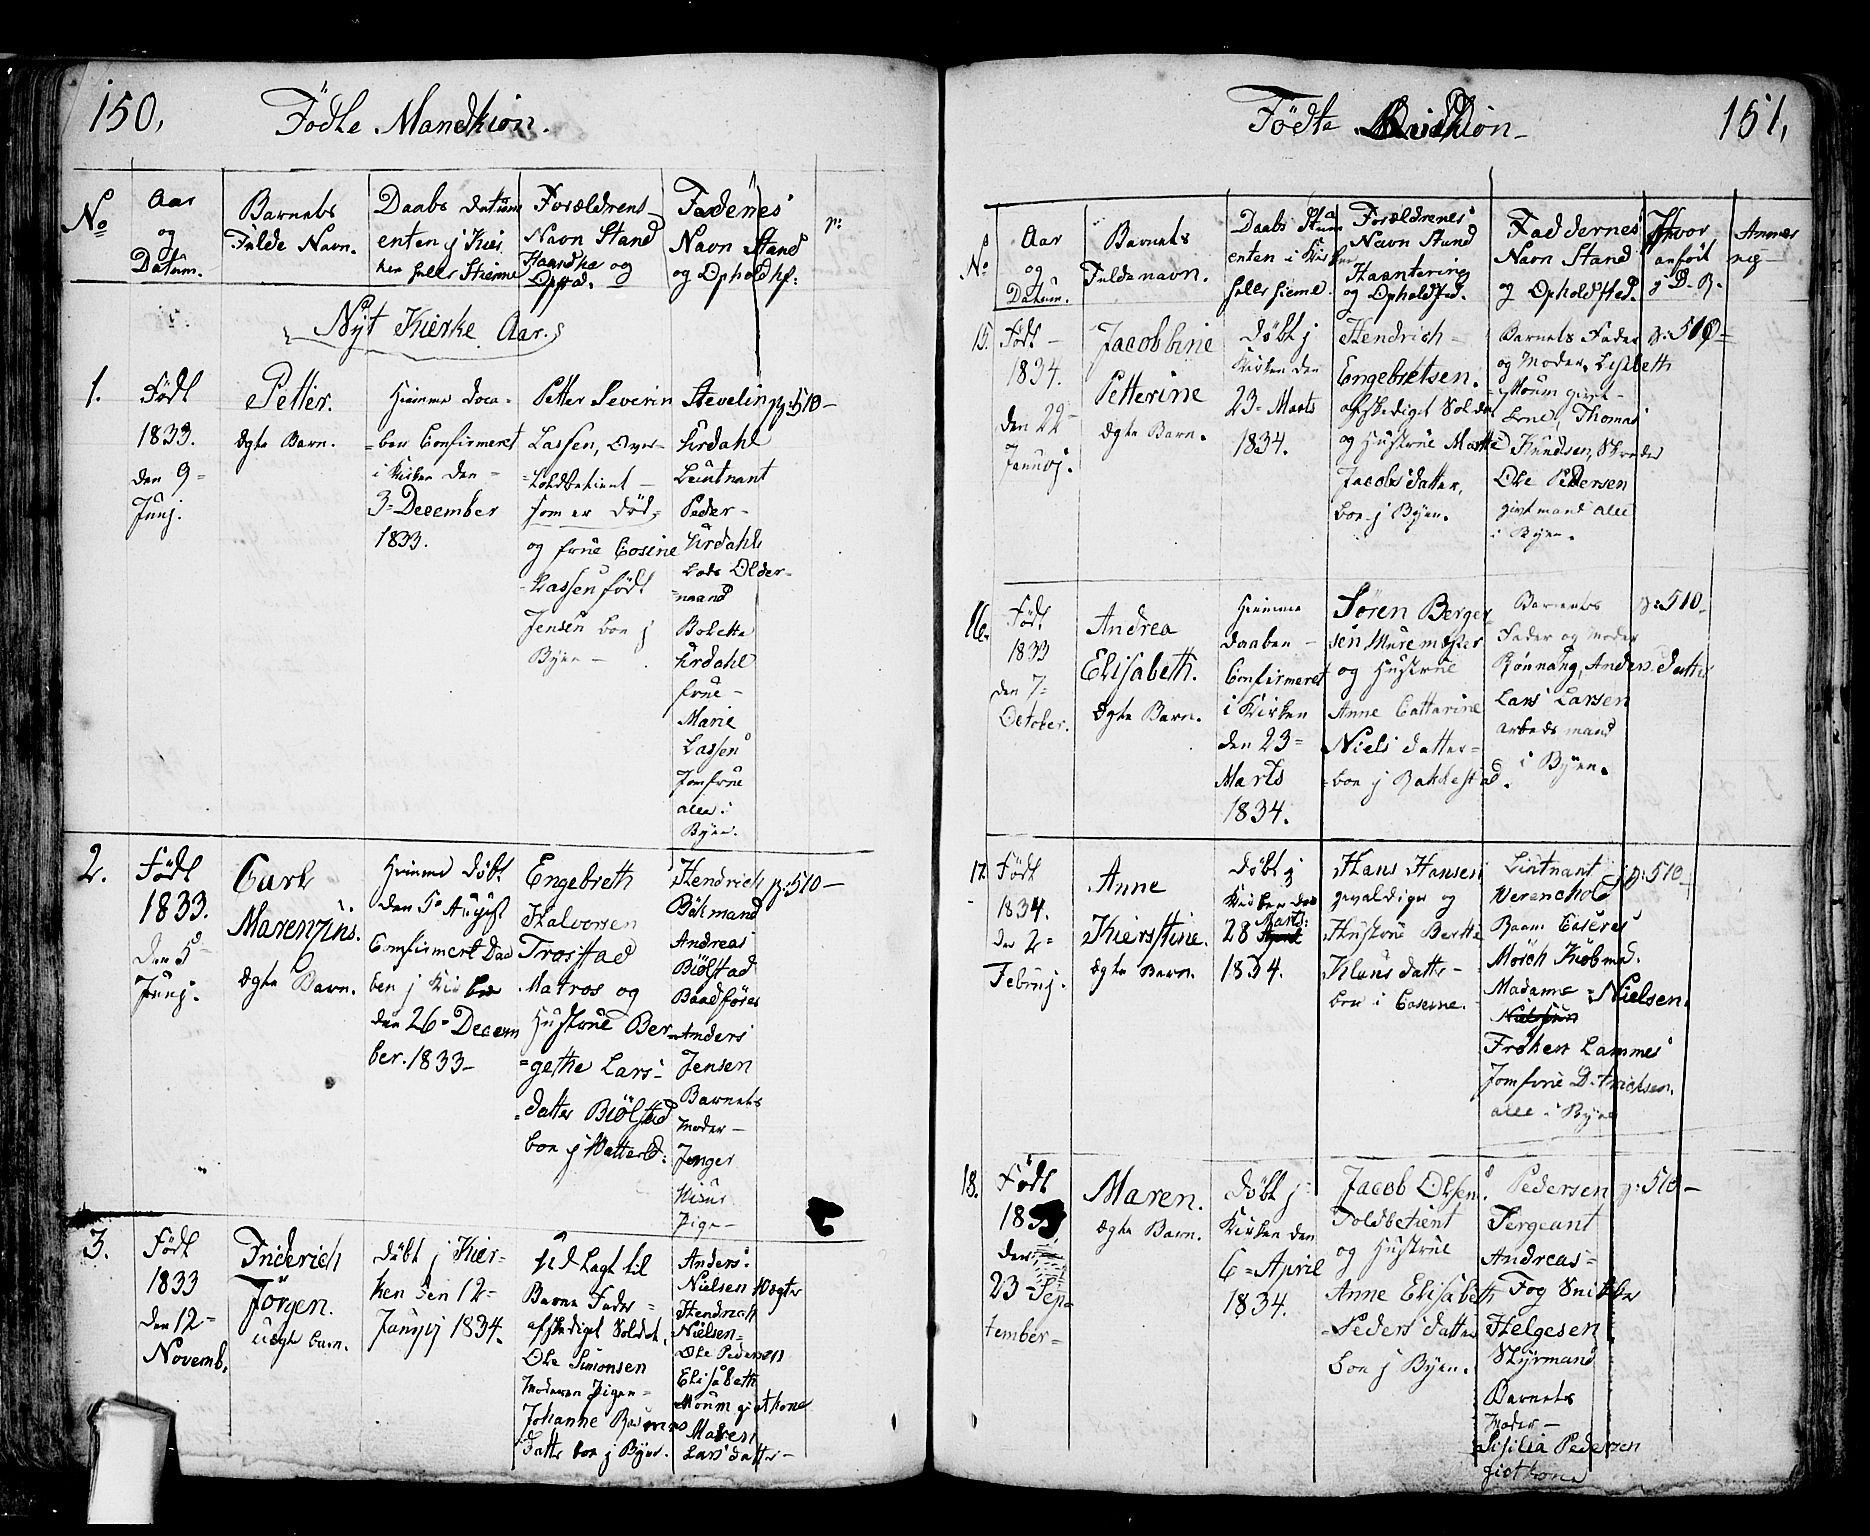 150,
Fødte Mandkiøn.
No
Aar
og
Datum.
Barnets
Fulde Navn.
Daabs datum
enten j Kir
ken heller Hiemme
Forældrens
Navn Stand
Haandtæ og
Opstad.
Fadenes
Navn Stand
og Ophold
Nyt Kierke Aar.
1.
Født
1833.
den 9-
Junj.
Petter.
ægte Barn.
Hiemme Doea-
ben Confirmeret
i Kirken den-
3-December
1833.
Petter Severin
Lassen, Over-
=toldbetient-
som er død,
og frue Cosine
Lassen født
Jensen boe j
Byen-
Stevelin
Urdahl
Leutnant
Peder-
Urdahl
Lods Older-
=mand
Bolette
Urdahl
frue-
Marie
Lassen
Jomfrue
alle i
Byen.
p:510-
2.
Født
1833.
den 5-
Junj.
Carl
Marenzius.
ægte Barn.
Hiemme døbt
den 5 August
Confirmert Daa
ben j Kirken
den 26-Decem
ber.1833-
Engebreth
Halvorsen
Trosstad
Matros og
Hustrue Ber-
=gethe Lars-
=datter Biølstad
boe j Watterld:
Hendrich
Bökmand
Andreas
Biølstad
Baadfører
Anders
Jensen
Barnets
Moder-
Jnger
Pige-
p:510-
3.
Født
1833
den 12-
Novemb.
Friderich
Jörgen.
uægte barn.
døbt j Kier-
ken den 12-
Janujj 1834.
Udlagt til
Barne Fader-
afskediget Soldat,
Ole Simonsen
Moderen Pigen-
Johanne Rasmus
datter boe j Byen.
Anders
Nielsen Vogter
Hendrich
Nielsen-
Ole Pedersen
Elisabeth
Moum gift kone
Maren
Lars datter-
Fødte Qvidkiøn-
151,
No
Aar
og
Datum.
Barnets
Fulde navn.
Daabs Datum
enten i Kirken
heller hieme.
Forældrenes
Navn Stand
Haantering
og Opholdsted.
Faddernes
Navn Stand
og Opholdsted.
Hvor
anført
j D. R.
Anmær
nig-
15.
Født-
1834.
den 22-
Januoj.
Jacobbine
Petterine
ægte Barn.
Døbt j
Kirken den
23-Marts
1834.
Hendrich-
Engebretsen.
afskediget Soldat
og Hustrue Marthe
Jacobs datter,
boe j Byen.
Barnets Fader
og Moder, Lisebeth
Moum givt-
kone, Thomas
Knudsen, Skreder
Ole Pedersen
givt mand alle
i Byen.
p:510-
16.
Født
1833
den 7-
October.
Andrea
Elisabeth.
ægte Barn.
Hiemme
daaben-
Confirmeret
i Kirken
den 23-
Marts
1834.
Sören Berger
sen Muremester
og Hustrue
Anne Cattarine
Niels datter-
=boe j Bakkestad.
Barnets
Fader og Moder
Rønnaug, Anders datter
Lars Larsen
arbeds mand
i Byen.
p:510-
17.
Født
1834.
den 2-
Februj.
Anne
Kierstine.
ægte Barn.
døbt j
Kirken den
Marts:
28 April
1834.
Hans Hansen
gevaldiger og
Hustrue Berthe
Klaus datter-
boe i Caserne.
Lieutnant
Werenchold
Baam Caserne
Mörch Kiöbmd.
Madame Nielsen.
Nielssen
Frøken Lammes
Jomfrue Ditrichsen.
alle i Byen
p:510-
18.
Født
1833
den
23-Sep-
tember-
Maren.
ægte Barn.
døbt j
Kirken den
6-April
1834.
Jacob Olsen.
Toldbetient
og Hustrue
Anne Elisabeth
-Peders datter
boe j Byen.
Pedersen
Sergeant
Andreas-
Fog Snikker
Helgesen
Styrmand
Barnets
Moder-
Sisilia Pedersen
giftkone
p:510-